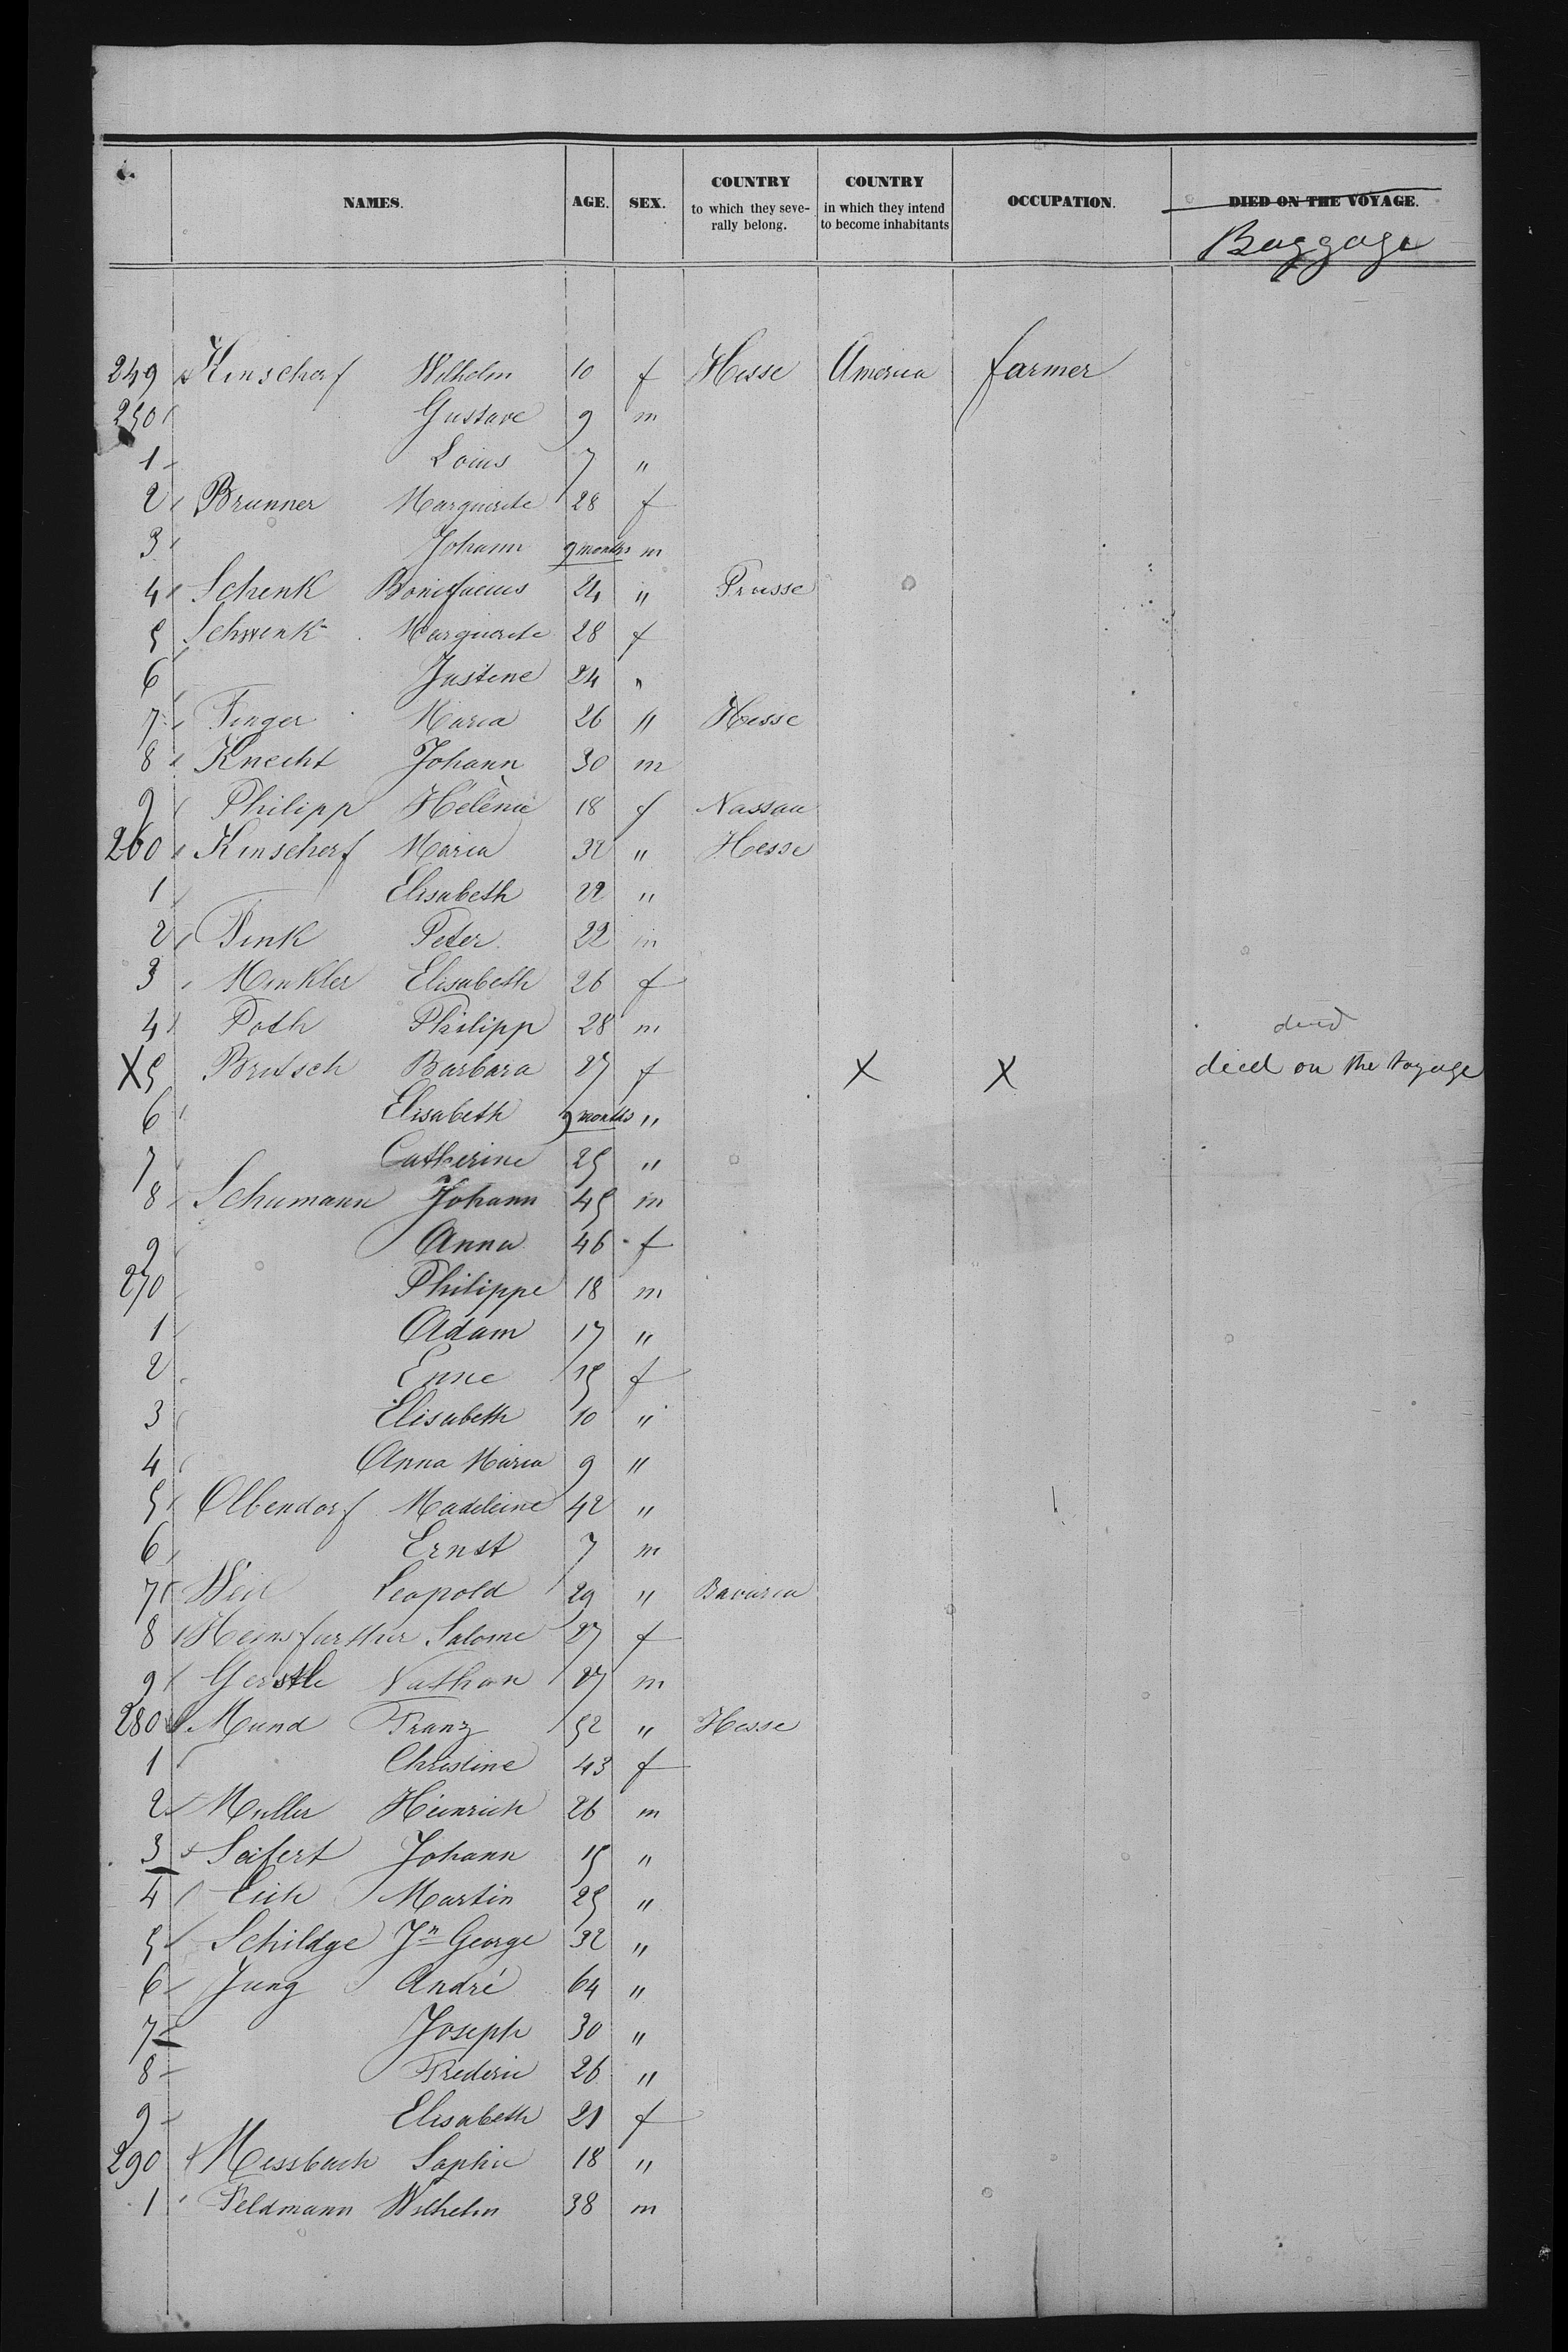 NAMES. AGE. SEX. COUNTRY to which they seve- rally belong. COUNTRY in which they intend to become inhabitants OCCUPATION. DIED ON THE VOYAGE.
Baggage
249 Kinscherf Wilhelm 10 f Hesse America farmer
250 Gustave 9 m
1 Louis 7 "
2 Brunner Marguerite 28 f
3 Johann 9 months m
4 Schenk Bonifacius 24 " Prusse
5 Schwenk Marguerite 28 f
6 Justine 24 "
7 Finger Maria 26 " Hesse
8 Knecht Johann 30 m
9 Philipp Hélène 18 f Nassau
260 Kinscherf Maria 32 " Hesse
1 Elisabeth 22 "
2 Fink Peter 22 m
3 Minkler Elisabeth 26 f
4 Poth Philipp 28 m died
X 5 Britsch Barbara 27 f X X died on the voyage
6 Elisabeth 9 months "
7 Catherine 25 "
8 Schumann Johann 45 m
9 Anna 46 f
270 Philippe 18 m
1 Adam 17 "
2 Enne 15 f
3 Elisabeth 10 "
4 Anna Maria 9 "
5 Olbendorf Madeleine 42 "
6 Ernst 7 m
7 Weil Leopold 29 " Bavaria
8 Heinsfurther Salome 27 f
9 Gerstle Nathan 27 m
280 Mund Franz 52 " Hesse
1 Christine 43 f
2 Muller Heinrich 26 m
3 Seifert Johann 15 "
4 Eich Martin 25 "
5 Schildge Jn George 32 "
6 Jung André 64 "
7 Joseph 30 "
8 Frederic 26 "
9 Elisabeth 21 f
290 Messbach Sophie 18 "
1 Feldmann Wilhelm 38 m